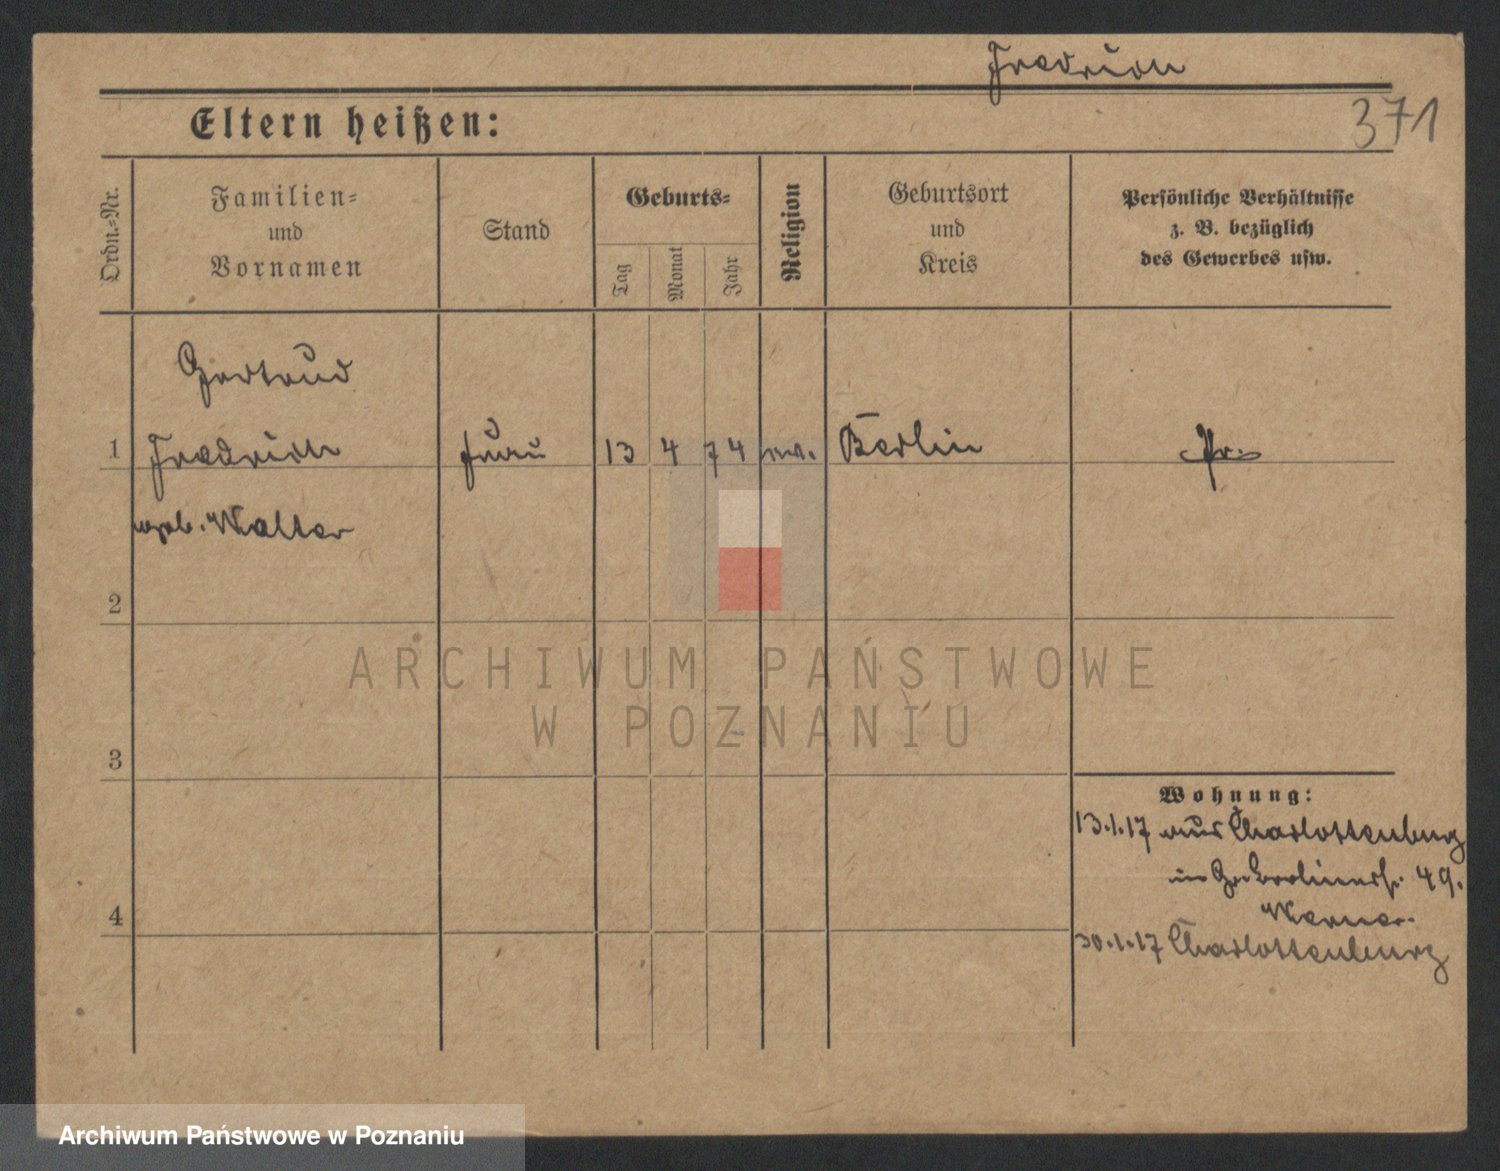 Fredrich
371
Eltern heißen:
Ordn.-Nr.
Familien-
und
Vornamen
Stand
Geburts-
Tag
Monat
Jahr
Religion
Geburtsort
und
Kreis
Persönliche Verhältnisse
z. B. bezüglich
des Gewerbes usw.
Gertrud
1 Frau 13 4 74 ev. Berlin Pr.
geb. Walter
2
3
4
Wohnung:
13.1.17 aus Charlottenburg
Berlinerstr. 49.
Werner.
30.1.17 Charlottenburg
ARCHIWUM PAŃSTWOWE
W POZNANIU
Archiwum Państwowe w Poznaniu